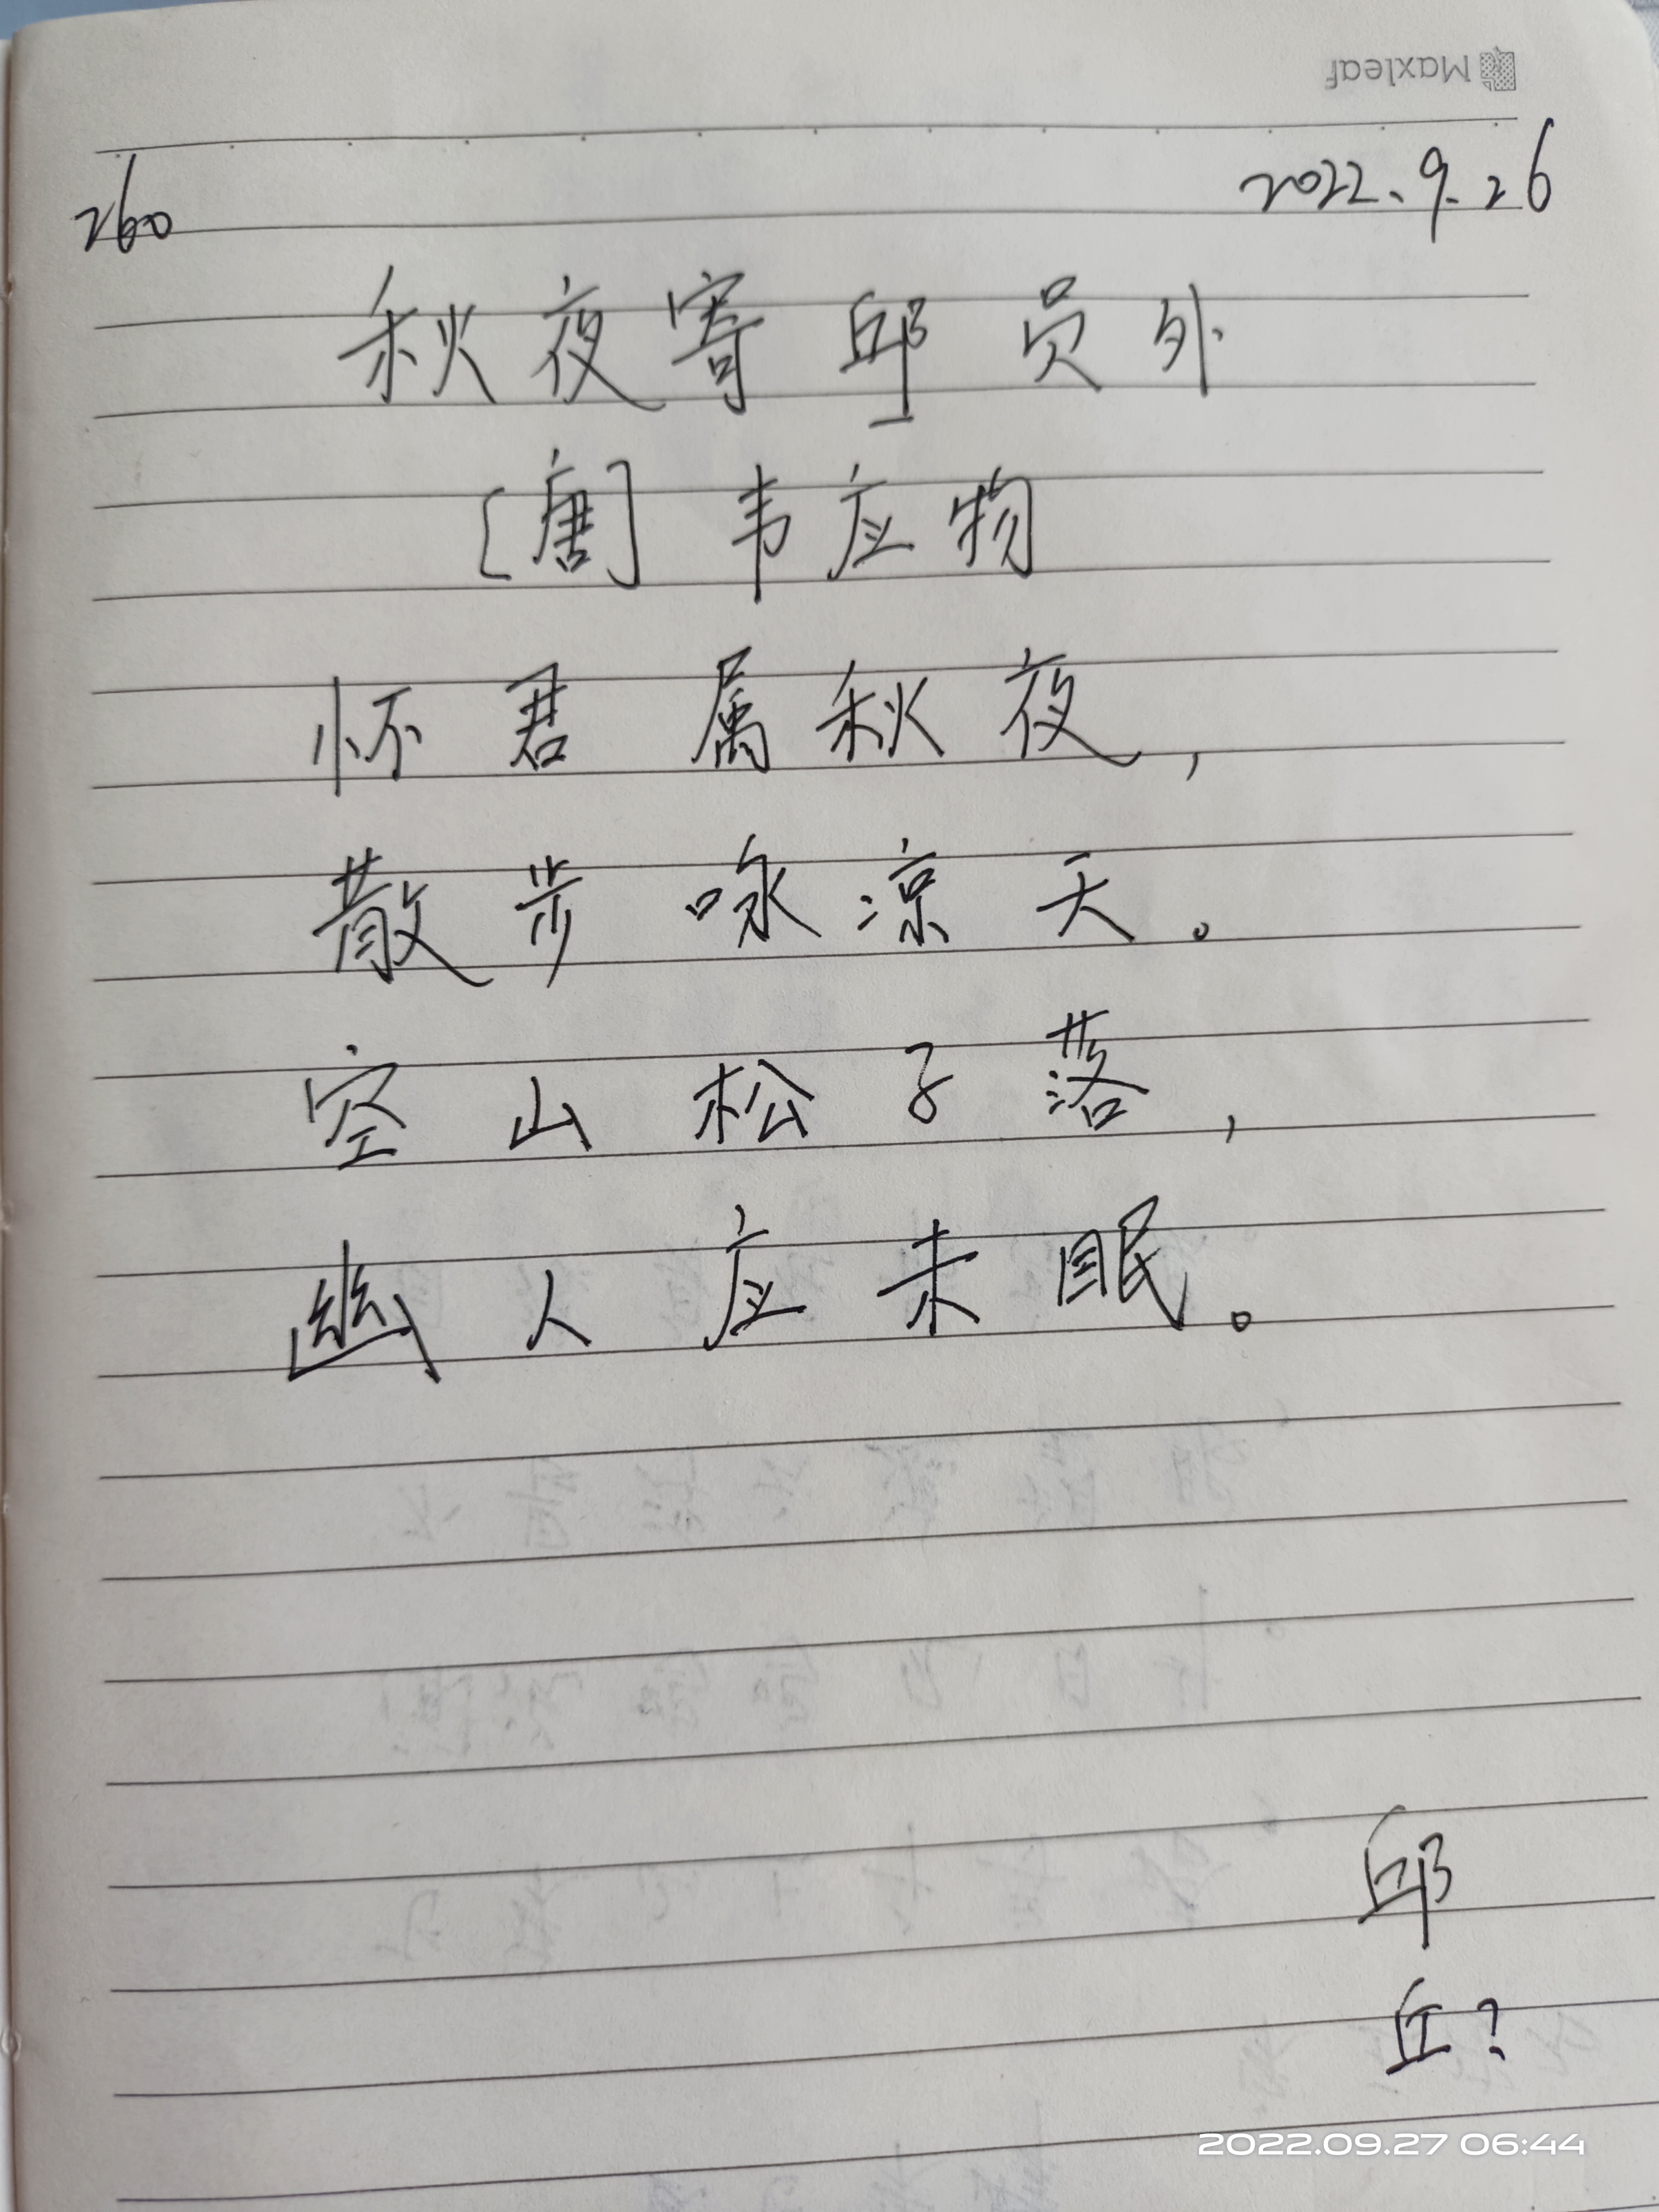 Maxleaf
260 2022.9.26
秋夜寄邱员外
[唐] 韦应物
怀君属秋夜，
散步咏凉天。
空山松子落，
幽人应未眠。
邱
丘？
2022.09.27 06:44